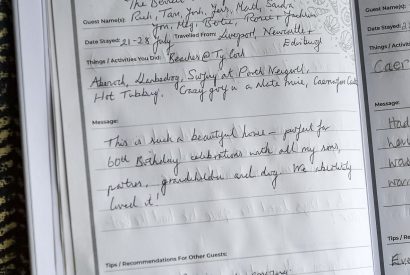 The
Guest Name(s): Ruth, Tom, Josh, Jess, Matt, Sandra
Date Stayed: 21-28 July Travelled From: Liverpool, Newcastle +
Edinburgh
Things / Activities You Did: Beaches @ Ty
Abersoch, Llanbedrog, Surfing at Porth Neigwl,
Hot Tubbing. Crazy golf in a slate mine, Caernarfon Castle
Message:
This is such a beautiful house - perfect for
60th Birthday celebrations with all my sons,
partners, grandchildren and dog. We absolutely
loved it!
Tips / Recommendations For Other Guests:
Things
Caer
Message:
Had
Tips / Re